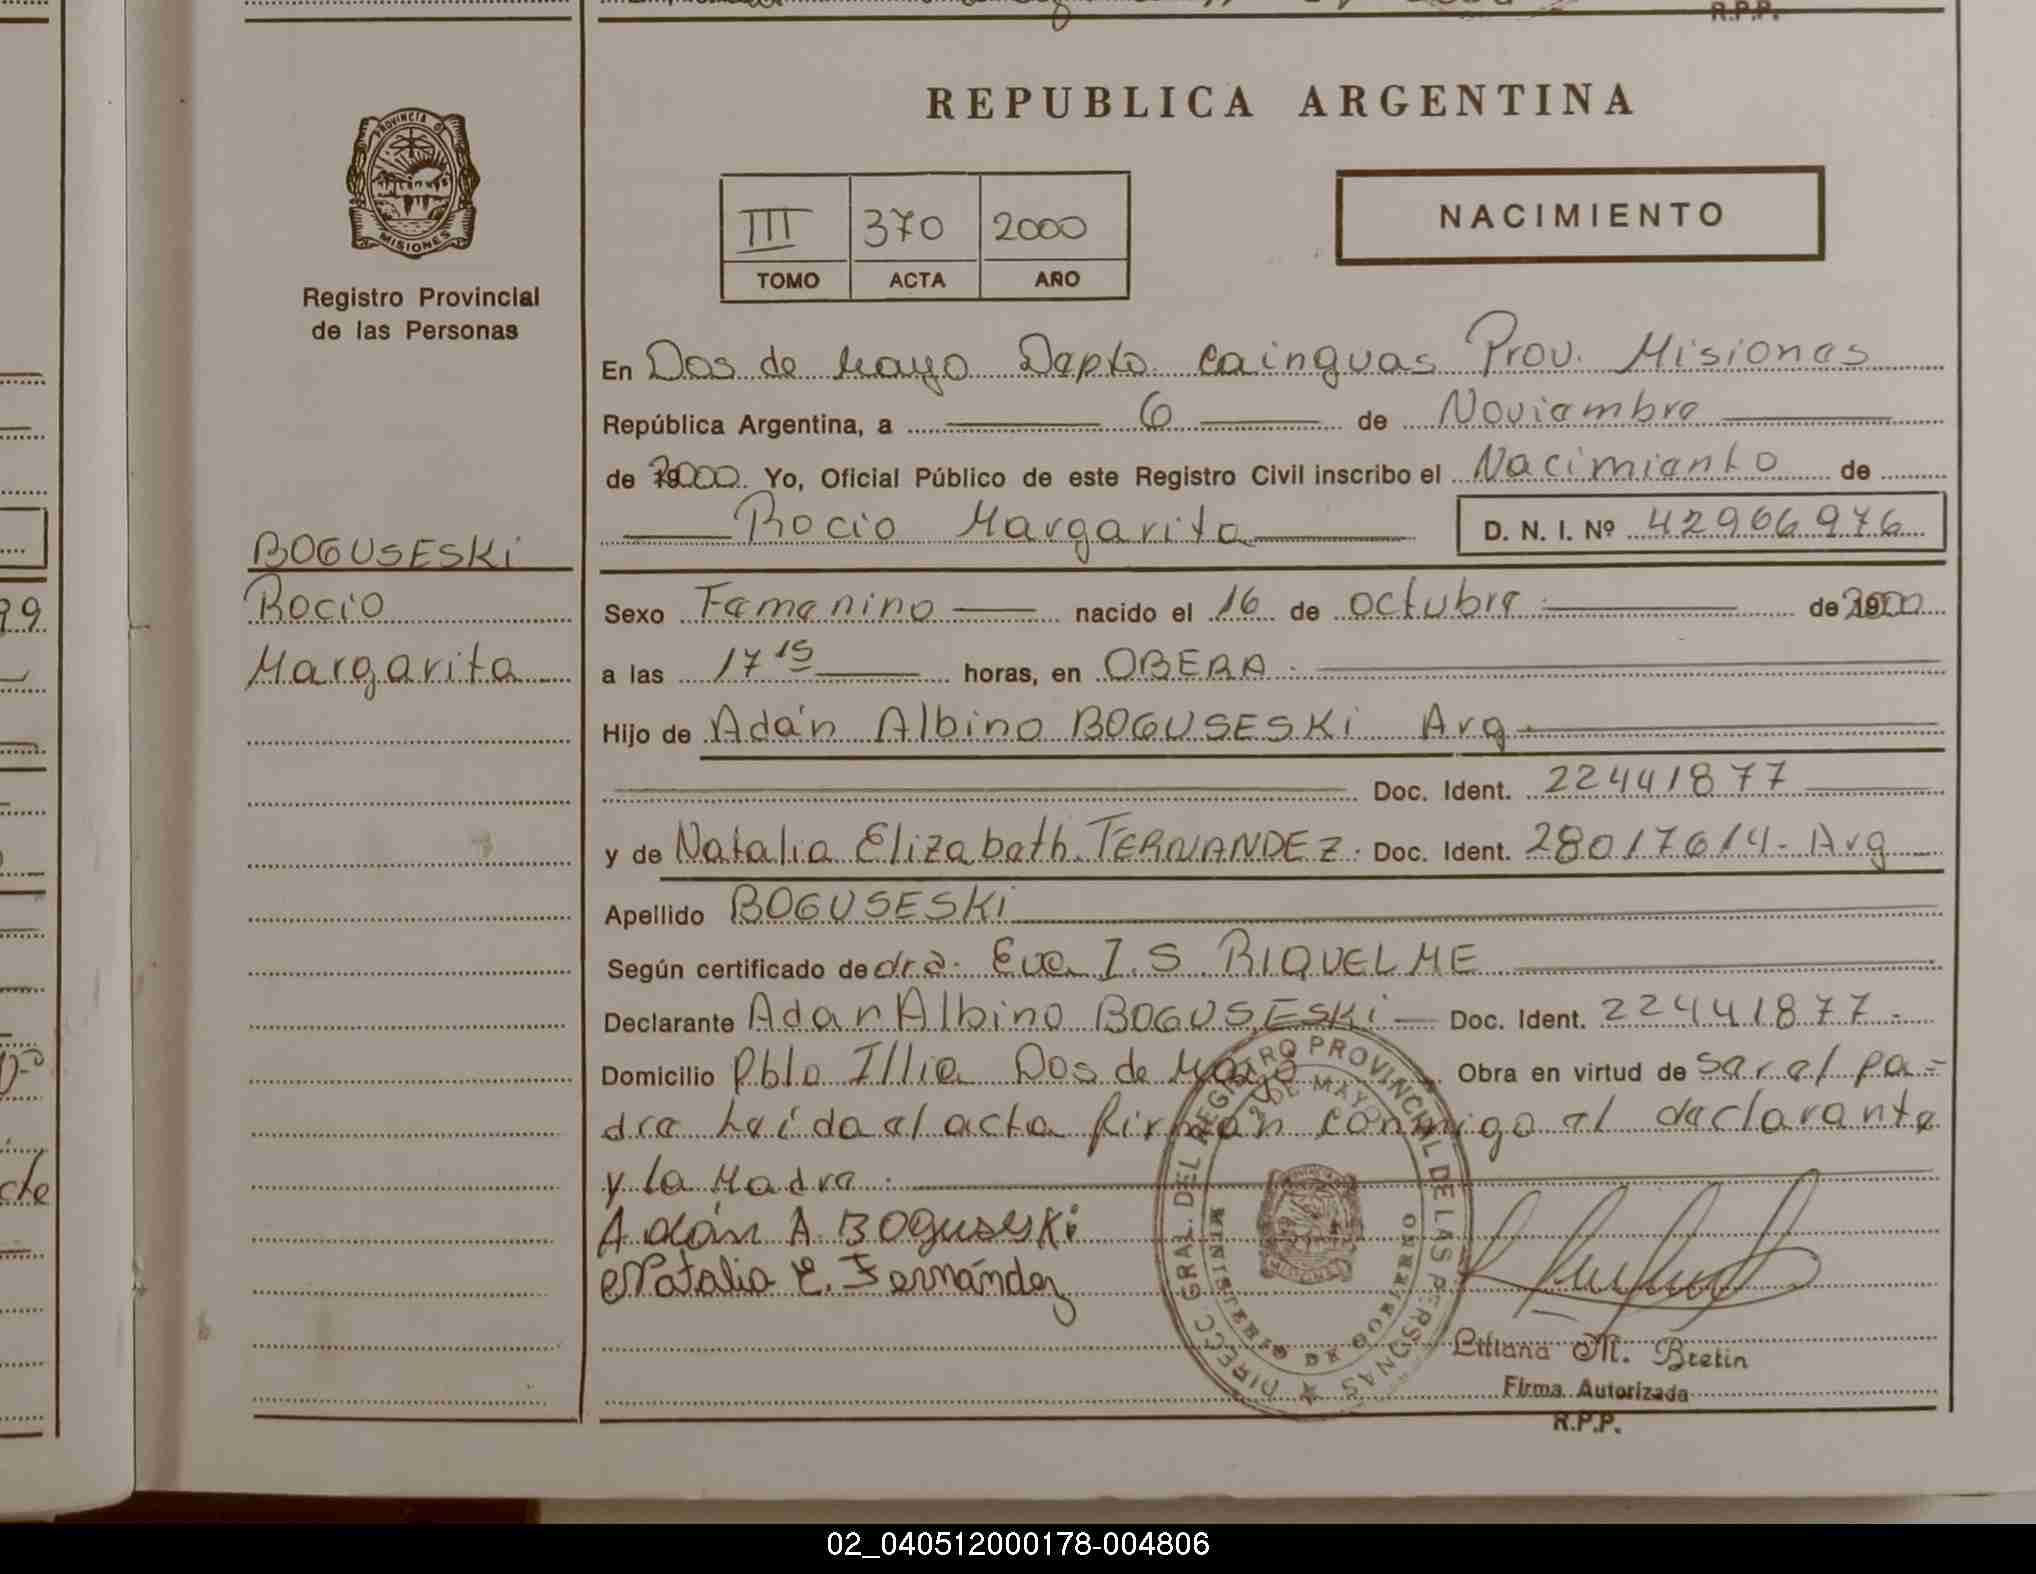 R.P.P.
PROVINCIA D
MISIONES
Registro Provincial
de las Personas
BOGUSESKi
Rocio
Margarita
REPUBLICA ARGENTINA
III 370 2000
TOMO ACTA AÑO
NACIMIENTO
En Dos de Mayo Depto Cainguas Prov. Misiones
República Argentina, a 6 de Noviembre
de 2000 Yo, Oficial Público de este Registro Civil inscribo el Nacimiento de
Rocio Margarita D. N. I. Nº 42966976
Sexo Femenino nacido el 16 de octubre de 2000
a las 17 15 horas, en OBERA.
Hijo de Adán Albino BOGUSESKi Arg
Doc. Ident. 22441877
y de Natalia Elizabeth FERNANDEZ. Doc. Ident. 28017614- Arg
Apellido BOGUSESKi
Según certificado de dra. Eva I. S RIQUELME
Declarante Adan Albino BOGUSESKi Doc. Ident. 22441877-
Domicilio Pblo Illia Dos de Mayo Obra en virtud de ser el pa=
dre Leída el acta firman conmigo el declarante
y la Madre.
Adán A BOguseski
Natalia E. Fernández
DIRECC. GRAL. DEL REGISTRO PROVINCIAL DE LAS PERSONAS
2 DE MAYO
MINISTERIO DE GOBIERNO
MISIONES
Liliana M. Bretin
Firma Autorizada
R.P.P.
99
cte
02_040512000178-004806